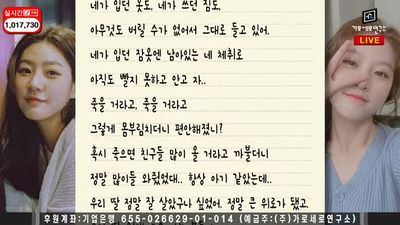 실시간
1,017,730
가로세로연구소
LIVE
네가 입던 옷도, 네가 쓰던 짐도,
아무것도 버릴 수가 없어서 그대로 들고 있어.
네가 입던 잠옷엔 남아있는 네 체취로
아직도 빨지 못하고 안고 자..
죽을 거라고, 죽을 거라고
그렇게 몸부림치더니 편안해졌니?
혹시 죽으면 친구들 많이 올 거라고 까불더니
정말 많이들 와줬었다.. 항상 아기 같았는데..
우리 딸 정말 잘 살았구나 싶었어. 정말 큰 위로가 됐고.
후원계좌:기업은행 655-026629-01-014 (예금주:(주)가로세로연구소)